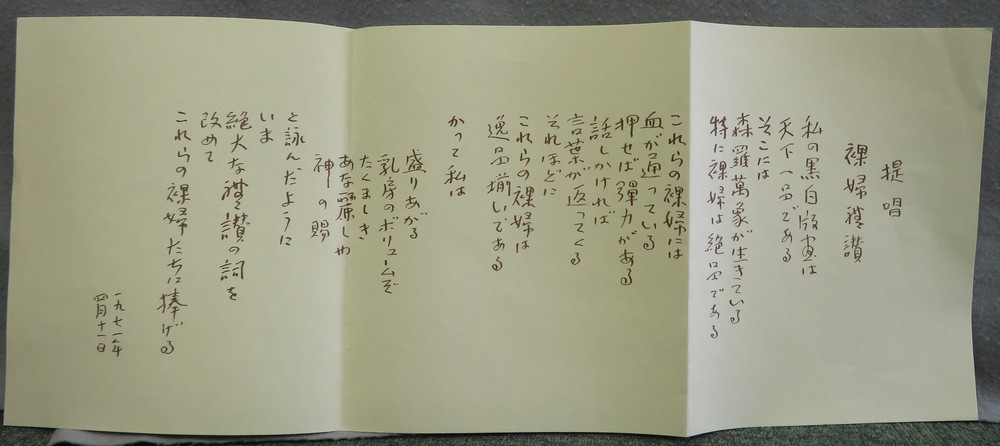 提唱
裸婦礼讃
私の黒白版画は
天下一品である
そこには
森羅萬象が生きている
特に裸婦は絶品である
これらの裸婦には
血が通っている
押せば彈力がある
話しかければ
言葉が返ってくる
それほどに
これらの裸婦は
逸品揃いである
かつて私は
盛りあがる
乳房のボリュームぞ
たくましき
あな麗しや
神の賜
と詠んだように
いま
絶大な禮讃の詞を
改めて
これらの裸婦たちに捧げる
一九七一年
四月十一日